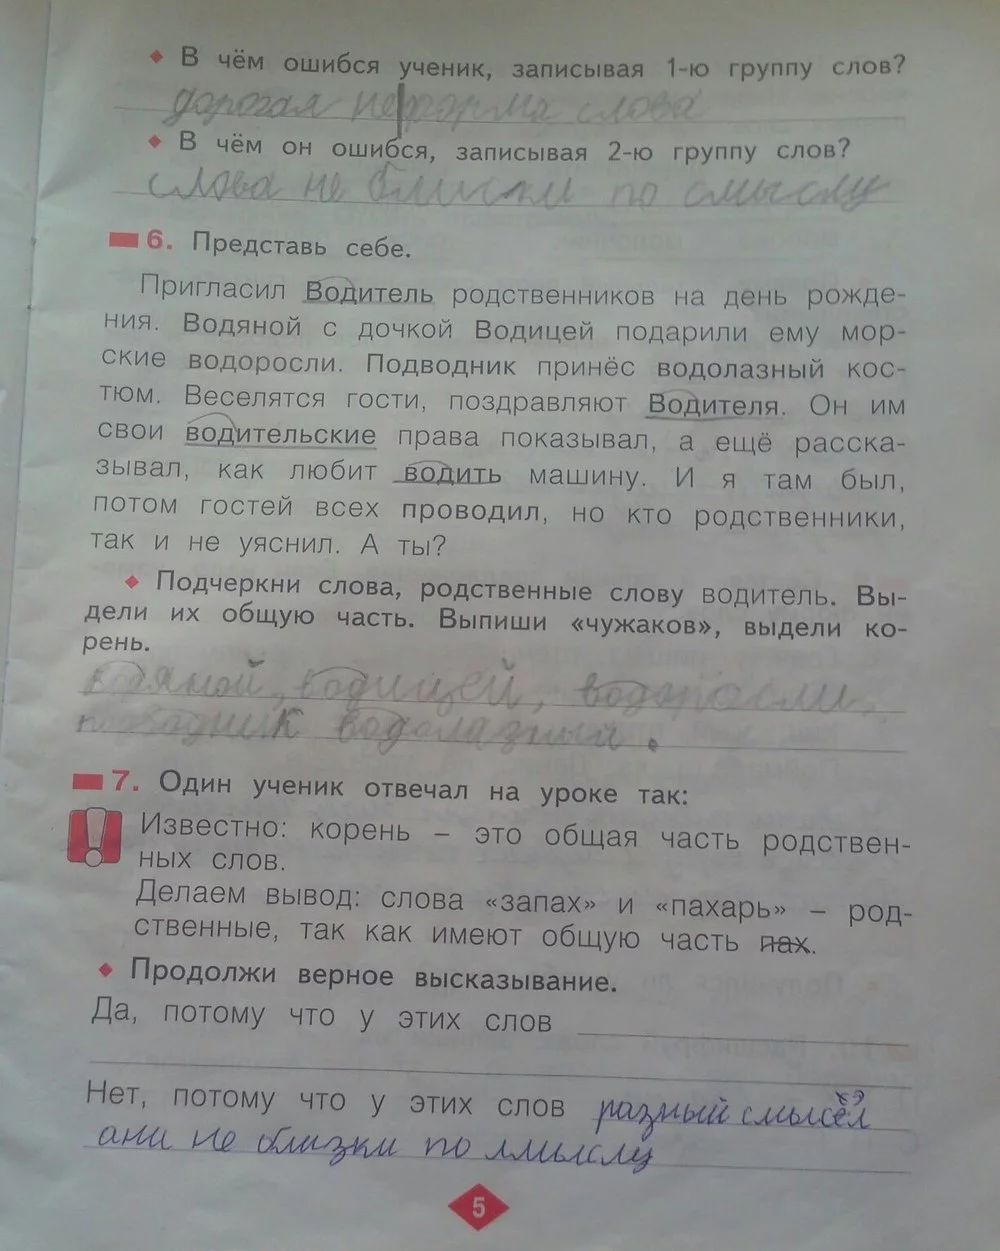 ◆ В чём ошибся ученик, записывая 1-ю группу слов?
дорогая не форма слова
◆ В чём он ошибся, записывая 2-ю группу слов?
слова не близки по смыслу
6. Представь себе.
Пригласил Водитель родственников на день рожде-
ния. Водяной с дочкой Водицей подарили ему мор-
ские водоросли. Подводник принёс водолазный кос-
тюм. Веселятся гости, поздравляют Водителя. Он им
свои водительские права показывал, а ещё расска-
зывал, как любит водить машину. И я там был,
потом гостей всех проводил, но кто родственники,
так и не уяснил. А ты?
◆ Подчеркни слова, родственные слову водитель. Вы-
дели их общую часть. Выпиши «чужаков», выдели ко-
рень.
водяной, водицей, водоросли,
подводник водолазный.
7. Один ученик отвечал на уроке так:
Известно: корень – это общая часть родствен-
ных слов.
Делаем вывод: слова «запах» и «пахарь» – род-
ственные, так как имеют общую часть пах.
◆ Продолжи верное высказывание.
Да, потому что у этих слов
Нет, потому что у этих слов разный смысёл
ани не близки по смыслу
5